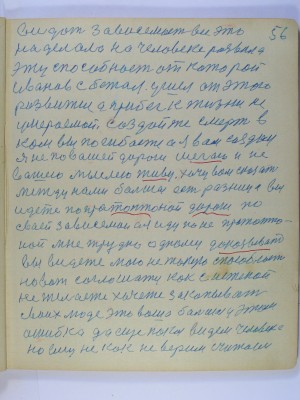 56
Сейдот зависемост ви это
на делало на человеке развила
эту способност от которой
Иванов сбежал ушел от этого
развития а прибег к жизни не
умераемой. Создайте смерть в
ком вы погибаете а я вам создам
я не по вашей дороги шегаю и не
вашею мыслию живу. хочу вам сказат
между нами балшая ест разница вы
идете по протоптоной дороги по
своей зависемои а я иду по не протопто
ной мне трудно одному доказывать
вы видете мою не такую способност
но вот согласитця как с техникой
не желаете хочете закапыват
самих людей это ваша балшая этом
ошибка да еще пока видем человека
но ему не как не верим считаем